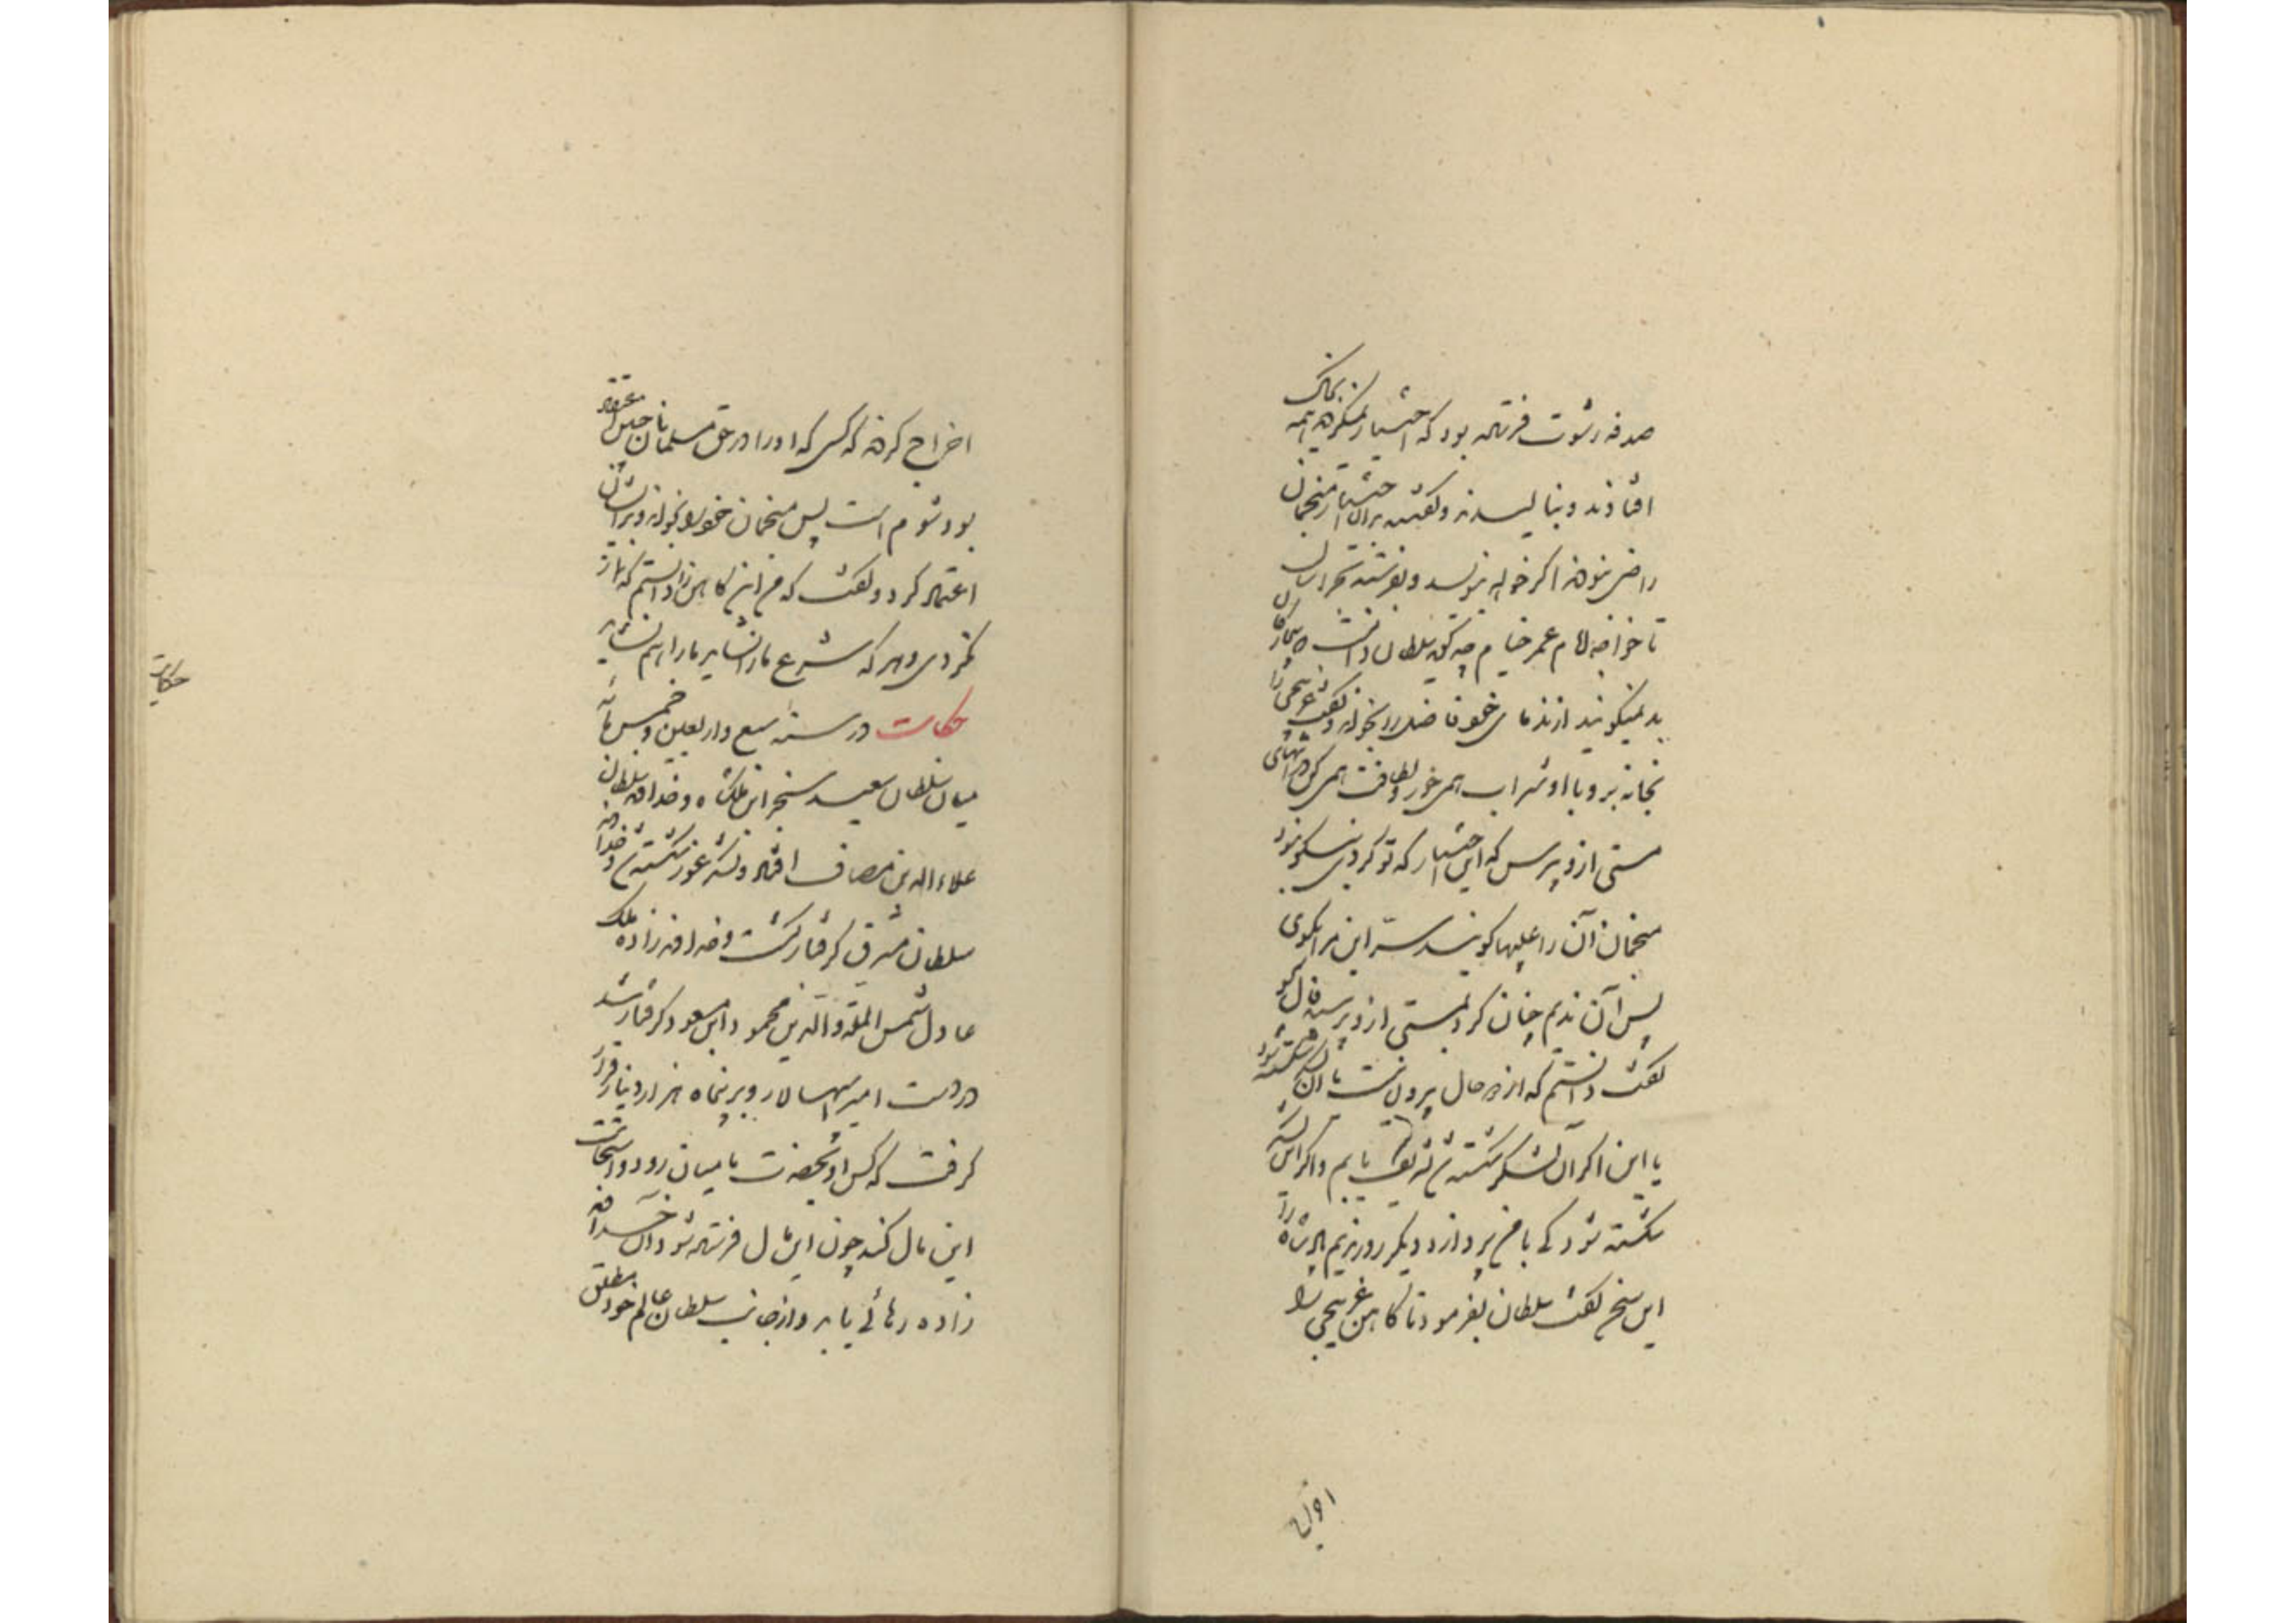 صدقه رشوت فرستاده بود که اختیار بکن همه بخاک
افتادند و بنالیدند و گفتند بدان اختیار منجمان
راضی نبودند اگر خواهد بنویسد و بفرستد بخراسان
تا خواجه امام عمر خیام چه گوید سلطان دانست که بیچارگان
بد نمیگویند از ندمای خود فاضلی را بخواند و گفت غزنیچی را
بخانه بر و با او شراب همی خور و لطافت همی کن در انتهای
مستی از وی بپرس که این اختیار که تو کردی نیکو نبود
منجمان آن را عیبها کویند سر این مرا بگوی
پس آن ندیم چنان کرد بمستی از وی پرسید فال گو
گفت دانستم که از دو حال بیرون نیست یا آن لشکر شکسته شود
یا این اگر آن لشکر شکسته شود تشریف یابم و اگر این لشکر
شکسته شود که با من پردازد دیگر روز ندیم پادشاه را
این سخن گفت سلطان بفرمود تا کاهن غزنیچی را
اخراج
اخراج کردند که کسی که او را در حق مسلمانان چنین اعتقاد
بود شوم است پس منجمان خود را بخواند و بر ایشان
اعتماد کرد و گفت که من این کاهن را دانستم که نماز
نکردی و هر که شرع ما را نشاید ما را هم نشاید
حکایت در سنه سبع و اربعین و خمس مائه
میان سلطان سعید سنجر ابن ملکشاه و خداوند سلطان
علاءالدین مصاف افتاد و لشکر غور شکسته شد و خداوند
سلطان مشرق گرفتار گشت و خداوند زاده ملک
عادل شمس الملة و الدین محمود ابن مسعود گرفتار شد
در دست امیر سپهسالار و بر پنجاه هزار دینار قرار
گرفت که کس او بحضرت بامیان رود و استحثاث
این مال کند چون این مال فرستاده شود آن خداوند
زاده رهائی یابد و از جانب سلطان عالم خود مطلق
حکایت